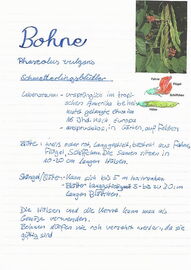 Bohne
Phaseolus vulgaris
Schmetterlingsblütler
Lebensraum: - ursprünglich im tropischen
Amerika
kurz gelangte etwa im
16. Jhd. nach Europa
- anspruchslos, in Gärten, auf Feldern
Blüte: weiß oder rot, besteht aus Fahne,
Flügel, Schiffchen. Die Samen sitzen in
10-20 cm langen Hülsen.
Stängel/Blätter: Kann bis 5 m hochranken
Blätter 8- bis zu 20 cm
langen Blättchen.
Die Hülsen und die Kerne kann man als
Gemüse verwenden.
Bohnen dürfen nie roh verzehrt werden, da sie
giftig sind
Fahne
Flügel
Schiffchen
Hülse